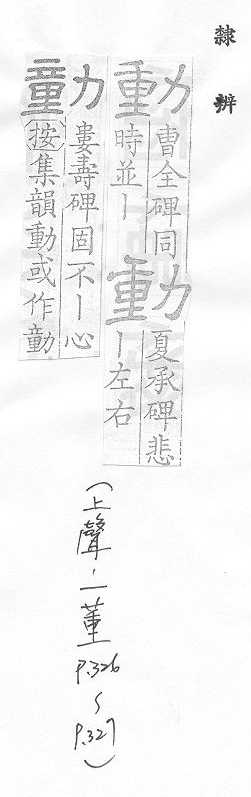 隸辨
動 曹全碑同
時並〡 動 夏承碑悲
〡左右
勭 婁壽碑固不〡心
按集韻動或作勭
(上聲,一董
P.326
~
P.327)